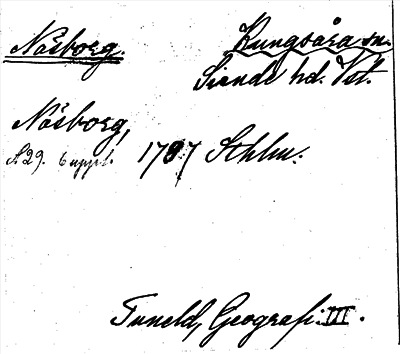 Näsborg.
Kungsåra sn.
Siende hd. Vst.
Näsborg,
S. 29. 6 uppl. 1787 Sthlm.
Tuneld, Geografi. III.